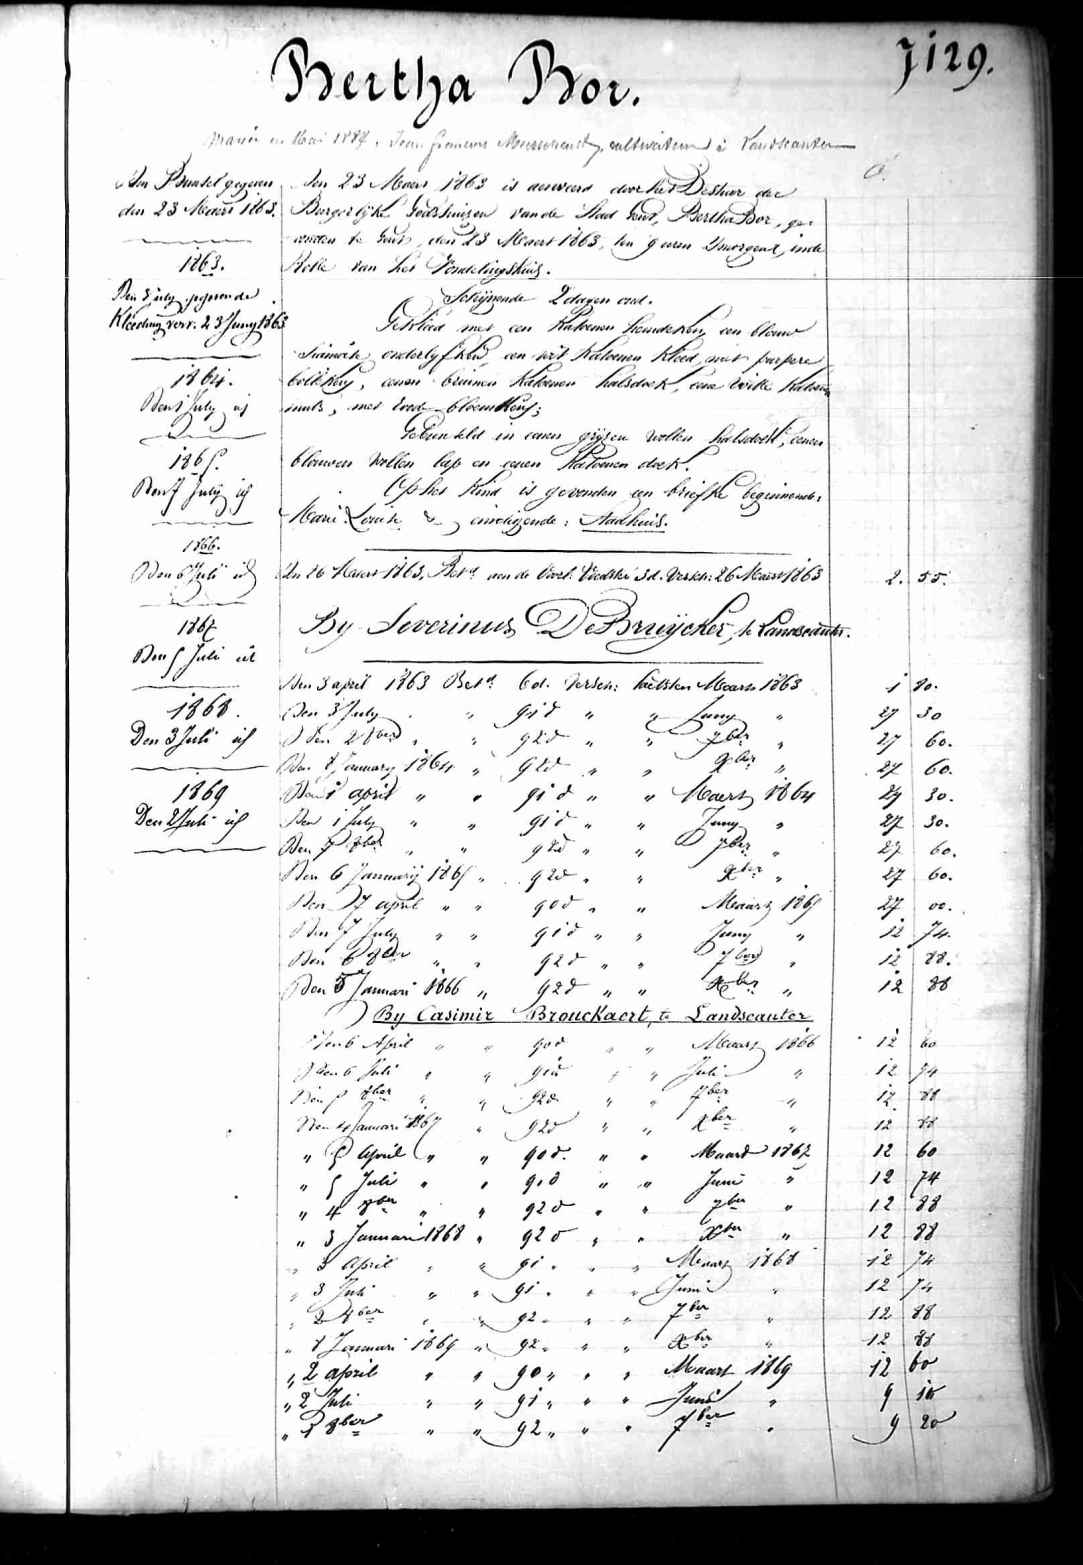 7129.
Bertha Bor.
Mariée en Mai 1884, Jean cultivateur à Landscauter
den 23 Maers 1863.
1863.
Den 3 July gegeven de
Kleeding verv. 23 Juny 1863
1864.
Den 1 July id
1865.
Den 7 July id
1866.
Den 6 Juli id
1867
Den 5 Juli id
1868.
Den 3 Juli id
1869
Den 2 Juli id
Den 23 Maers 1863 is door het Bestuur der
Burgerlijke Godshuizen van de Stad Gend, Bertha Bor, ge-
vonden te Gend, den 23 Maert 1863, ten 9 uren 's morgens, in de
Rolle van het Vondelingshuis.
Schijnende 2 dagen oud.
Gekleed met een Katoenen hemdeken, een blauw
onderlyfken, een wit Katoenen Kleed met purpere
bollekens, eenen bruinen Katoenen halsdoek, eene witte Katoenen
muts, met roode bloemkens;
Gebunseld in eenen grijsen wollen halsdoek, eenen
blauwen wollen lap en eenen Katoenen doek.
Op het Kind is gevonden een briefke beginnende:
Marie Louise & eindigende: Stadhuis.
Den 26 Maert 1863, Bet.d aan de Voorl. Voedster 3 d. Versch: 26 Maert 1863 2. 55.
By Severinus De Bruÿcker, te Landscauter.
Den 3 april 1863 Bet.d 6 d. Versch: Maers 1863 1 80.
Den 3 July " 91 d " " Juny " 27 30
Den 2 8ber " " 92 d " " 7ber " 27 60.
Den 8 January 1864 " 92 d " " Xber " 27 60.
Den 1 april " " 91 d " " Maers 1864 27 30.
Den 1 July " " 91 d " " Juny " 27 30.
Den 7 8ber " " 92 d " " 7ber " 27 60.
Den 6 Januarij 1865 " 92 d " " Xber " 27 60.
Den 7 april " " 90 d " " Maars 1865 27 00.
Den 7 July " " 91 d " " Juny " 12 74.
Den 6 8ber " " 92 d " " 7ber " 12 88.
Den 5 Januari 1866 " 92 d " " Xber " 12 88
By Casimir Brouckaert, te Landscauter
Den 6 April " " 90 d " " Maars 1866 12 60
Den 6 Juli " " 91 d " " Juli " 12 74
Den 5 8ber " " 92 d " " 7ber " 12 88
Den 4 Januari 1867 " 92 d " " Xber " 12 88
" 5 April " " 90 d. " " Maars 1867 12 60
" 5 Juli " " 91 d " " Juni " 12 74
" 4 8ber " " 92 d " " 7ber " 12 88
" 3 Januari 1868 " 92 d " " Xber " 12 88
" 3 April " " 91 " " " Maars 1868 12 74
" 3 Juli " " 91 " " " Juni " 12 74
" 2 8ber " " 92 " " " 7ber " 12 88
" 8 Januari 1869 " 92 " " " Xber " 12 88
" 2 april " " 90 " " " Maart 1869 12 60
" 2 Juli " " 91 " " " Juni " 9 10
" 1 8ber " " 92 " " " 7ber " 9 20